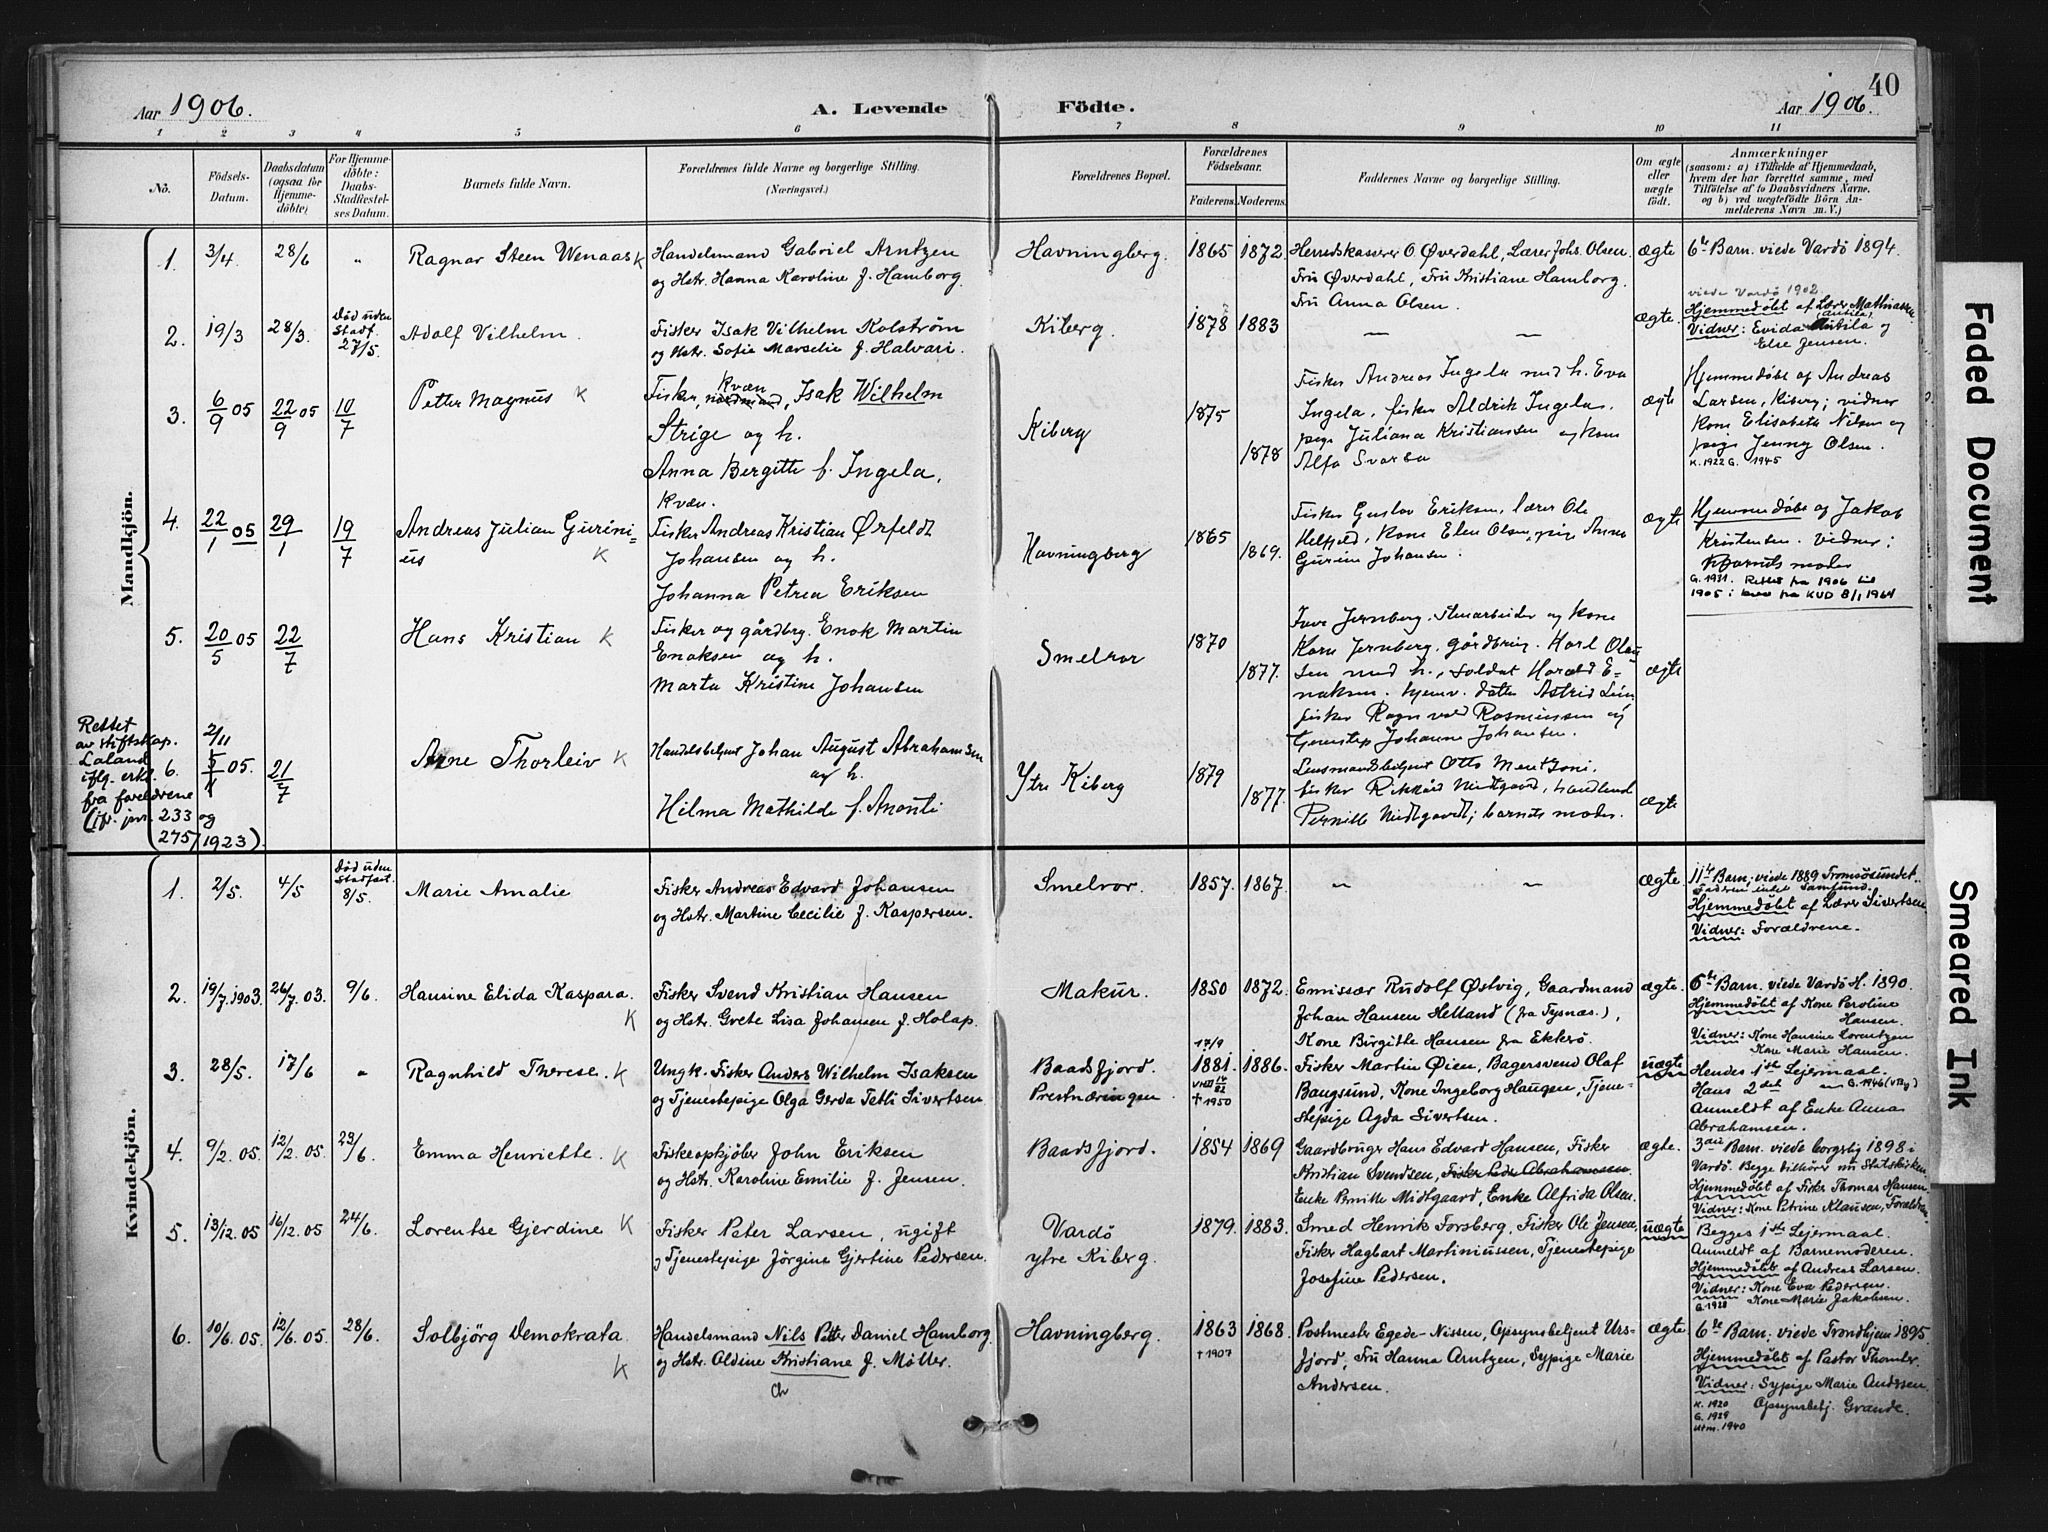 40
Aar 1906.
A. Levende
Födte.
Aar 1906.
1 2 3 4 5 6 7 8 9 10 11
No.
Födsels-
Datum.
Daabsdatum
(ogsaa for
Hjemme-
döbte)
For Hjemme-
döbte:
Daabs-
Stadfæstel-
ses Datum.
Barnets fulde Navn.
Forældrenes fulde Navne og borgerlige Stilling.
(Næringsvei.)
Forældrenes Bopæl.
Forældrenes
Födselsaar.
Faderens. Moderens.
Faddernes Navne og borgerlige Stilling.
Om ægte
eller
uægte
födt.
Anmærkninger
(saasom: a) i Tilfælde af Hjemmedaab,
hvem der har forrettet samme, med
Tilföielse af to Daabsvidners Navne,
og b) ved uægtefödte Börn An-
melderens Navn m. V.)
Mandkjön.
1. 3/4 28/6 " Ragnar Steen Wenaas K
Handelsmand Gabriel Arntzen
og Hstr. Hanna Karoline f. Hamborg.
Havningberg. 1865 1872.
Herredskasserer O. Øverdahl, Lærer Johs. Olsen.
Fru Øverdahl, Fru Kristiane Hamborg.
Fru Anna Olsen.
ægte 6te Barn. viede Vardö 1894.
2. 19/3 28/3.
Död uden
Stadf.
27/5.
Adolf Vilhelm.
Fisker Isak Vilhelm Kolström
og Hstr. Sofie Marselie f. Halvari.
Kiberg. 1878 1883 — —
ægte.
viede Vardö 1902.
Hjemmedöbt af Lærer Mathiassen
(Antila)
Vidner: Evida Antila og
Else Jensen.
3. 6/9 05 22/9 05 10/7 Petter Magnus K
Kvæn
Fisker, nordmand, Isak Wilhelm
Strige og h.
Anna Bergitte f. Ingela.
Kvæn.
Kiberg 1875 1878
Fisker Andreas Ingela med h. Eva
Ingela, fisker Aldrik Ingela,
pige Juliana Kristiansen og kone
Alfa Svarba
ægte
Hjemmedöbt af Andreas
Larsen, Kiberg; vidner
kone Elisabeth Nilsen og
pige Jenny Olsen.
K. 1922 G. 1945
4. 22/1 05 29/1 19/7 Andreas Julian Gurini-
us K
Fisker Andreas Kristian Ørfeldt
Johansen og h.
Johanna Petrea Eriksen
Havningberg 1865 1869.
Fisker Gustav Eriksen, lærer Ole
Helfjeld, kone Elen Olsen, pige Anna
Gurine Johansen.
ægte
Hjemmedöbt af Jakob
Kristensen. Vidner:
Barnets moder
G. 1931. Rettet fra 1906 til
1905 i brev fra KUD 8/1 1964
5. 20/5 05 22/7 Hans Kristian K
Fisker og gårdbrg. Enok Martin
Enoksen og h.
Marta Kristine Johansen
Smelror 1870 1877.
Jernberg, stenarbeider og kone
Jernberg, gårdbrug. Karl Olau-
sen med h., soldat Harald E-
noksen. hjemv. datter Astrid
fisker Ragnvald Rasmussen og
tjenestep. Johanne Johansen.
ægte
Rettet
av stiftskap.
Laland
iflg. erkl.
fra foreldrene
(jfr. jnr. 233 og
275/1923).
6. 2/11 05. 21/7 Arne Thorleiv K
Handelsbetjent Johan August Abrahamsen
og h.
Hilma Mathilde f. Anonti
Ytre Kiberg 1879 1877.
Lensmandsbetjent Otto Mentzoni,
fisker Rikkard Midtgaard, handlende
Pernille Midtgaard; barnets moder.
ægte
Kvindekjön.
1. 2/5. 4/5
Död uden
Stadfæst.
8/5.
Marie Amalie
Fisker Andreas Edvard Johansen
og Hstr. Martine Cecilie f. Kaspersen.
Smelror. 1857. 1867. — —
ægte.
11te Barn. viede 1889 Tromsösundet.
Faderen intet Samfund.
Hjemmedöbt af Lærer Sivertsen.
Vidner: Forældrene.
2. 19/7. 1903. 26/7. 03. 9/6. Hansine Elida Kaspara. K
Fisker Svend Kristian Hansen
og Hstr. Grete Lisa Johansen f. Holap.
Makur. 1850 1872.
Emissær Rudolf Østvig, Gaardmand
Johan Hansen Helland (fra Tysnæs.),
Kone Birgitte Hansen fra Ekkerö.
ægte.
6te Barn. viede Vardö H. 1890.
Hjemmedöbt af Kone Peroline
Hansen.
Vidner: Kone Hansine Lorentzen
Kone Marie Hansen.
3. 28/5. 17/6 " Ragnhild Therese. K
Ungk. Fisker Anders Wilhelm Isaksen
og Tjenestepige Olga Gerda Tetli Sivertsen
Baadsfjord.
Prestnæringen
17/9
1881.
† 1950
1886.
Fisker Martin Øien, Bagersvend Olaf
Bangsund, Kone Ingeborg Haugen, Tjene-
stepige Agda Sivertsen.
uægte
Hendes 1ste Lejermaal.
Hans 2det — G. 1946
Anmeldt af Enke Anna
Abrahamsen.
4. 9/2. 05. 12/2. 05. 23/6. Emma Henriette. K
Fiskeopkjöber John Eriksen
og Hstr. Karoline Emilie f. Jensen.
Baadsfjord. 1854 1869
Gaardbruger Hans Edvard Hansen, Fisker
Kristian Svendsen, Fisker Peder Abrahamsen.
Enke Pernille Midtgaard, Enke Alfrida Olsen.
ægte.
3die Barn. viede borgerlig 1898 i
Vardö. Begge tilhörer nu Statskirken
Hjemmedöbt af Fisker Thomas Hansen
Vidner: Kone Petrine Klausen, Forældrene.
5. 13/12. 05 16/12. 05 24/6. Lorentse Gjerdine K
Fisker Peter Larsen, ugift
og Tjenestepige Jörgine Gjertine Pedersen.
Vardö
ytre Kiberg.
1879. 1883.
Smed Henrik Forsberg, Fisker Ole Jensen,
Fisker Hagbart Martiniussen, Tjenestepige
Josefine Pedersen.
uægte
Begges 1ste Lejermaal.
Anmeldt af Barnemoderen.
Hjemmedöbt af Andreas Larsen.
Vidner: Kone Eva Pedersen
G. 1928 Kone Marie Jakobsen.
6. 10/6. 05. 12/6. 05. 28/6. Solbjörg Demokrata K
Handelsmand Nils Petter Daniel Hamborg.
og Hstr. Oldine Kristiane f. Möller.
Ch
Havningberg. 1863 † 1907 1868.
Postmester Egede-Nissen, Opsynsbetjent Urs-
fjord, Fru Hanna Arntzen, Sypige Marie
Andersen.
ægte
6te Barn. viede Trondhjem 1895
Hjemmedöbt af Pastor Thomter.
Vidner: Sypige Marie Andersen.
K. 1920 Opsynsbetj. Grande.
G. 1929
utm. 1940
Faded Document
Smeared Ink